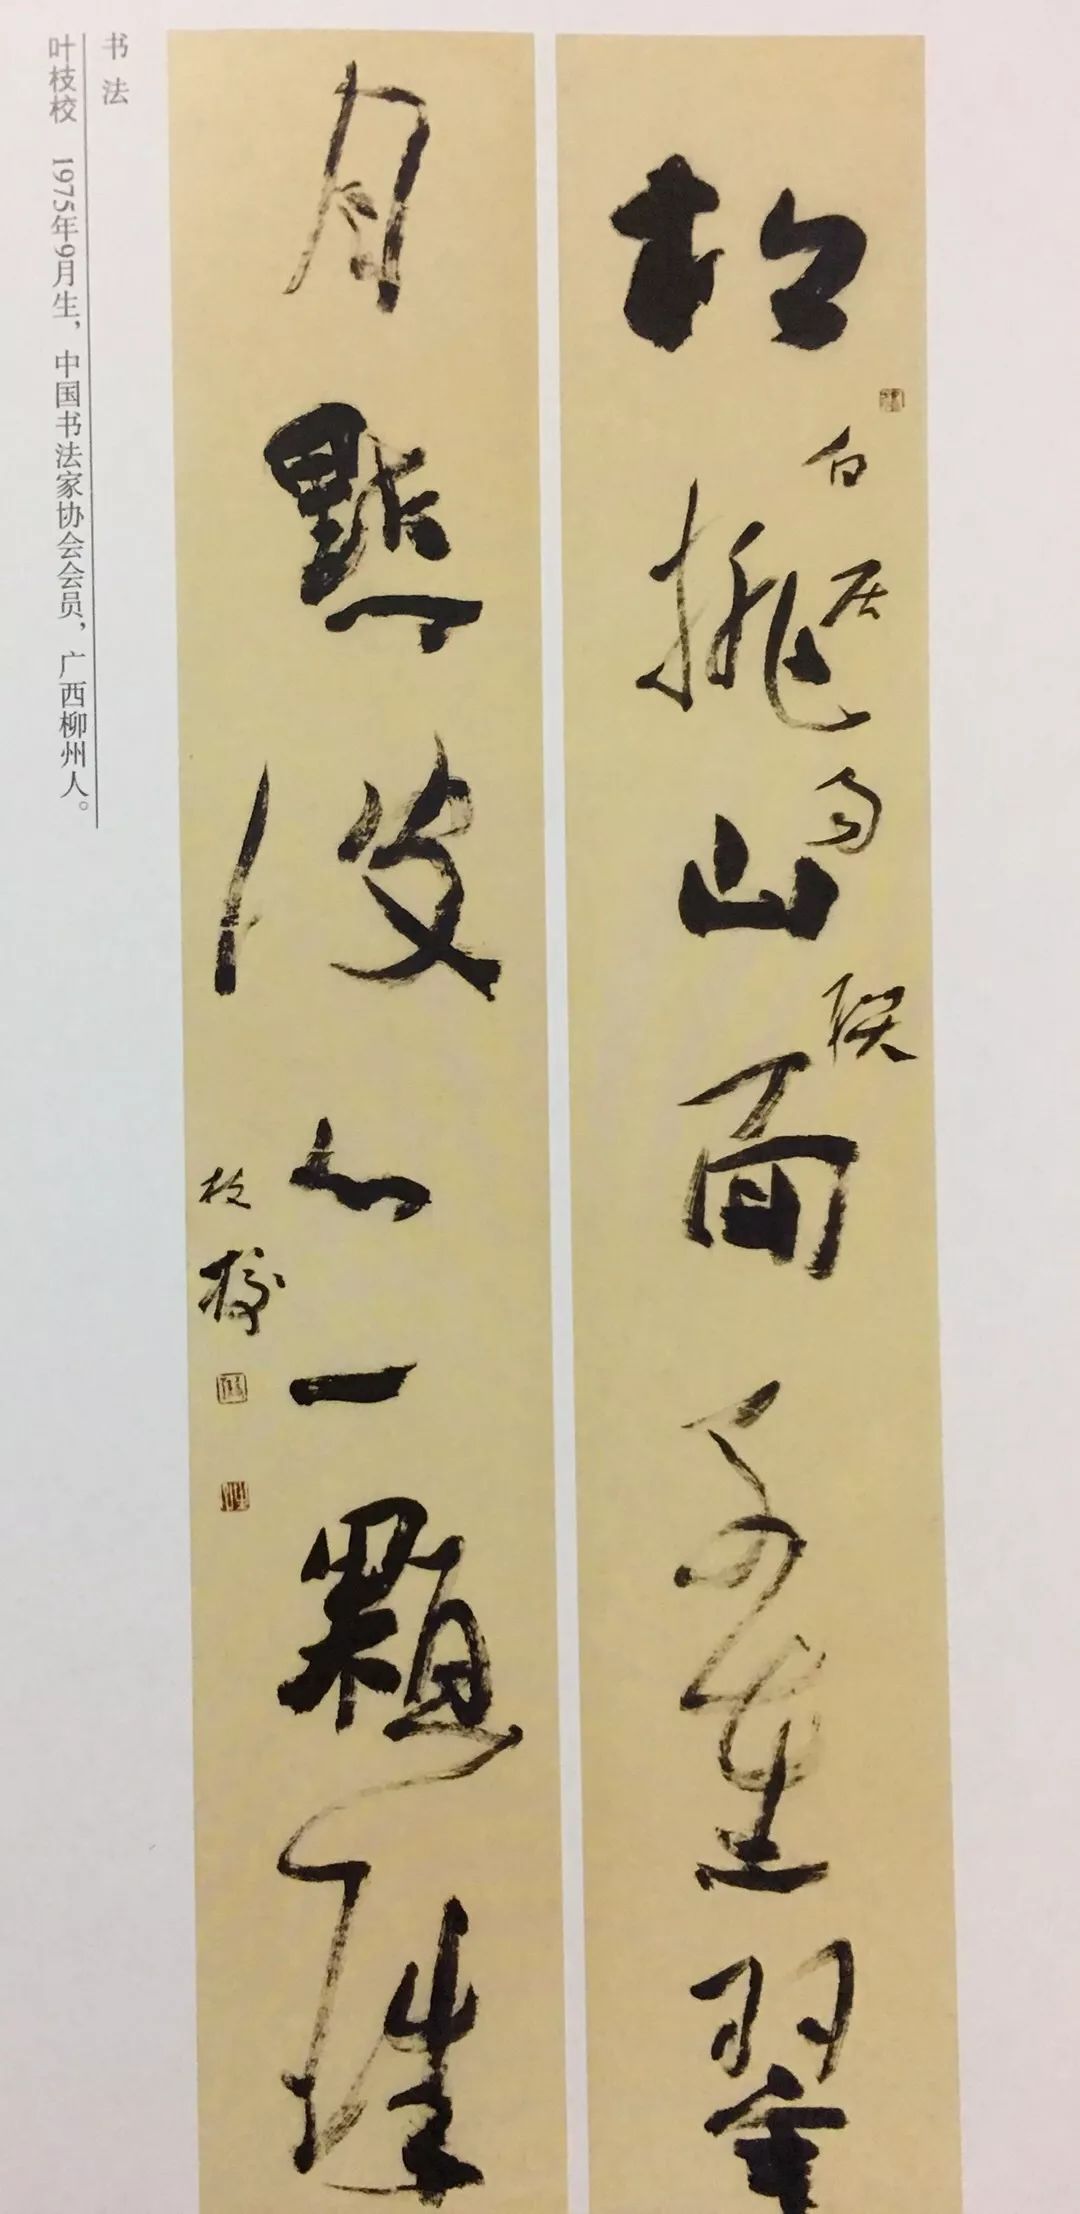 松排山面千重翠
白居易联
月點波心一顆珠
枝校
书法
叶枝校 1975年9月生，中国书法家协会会员，广西柳州人。